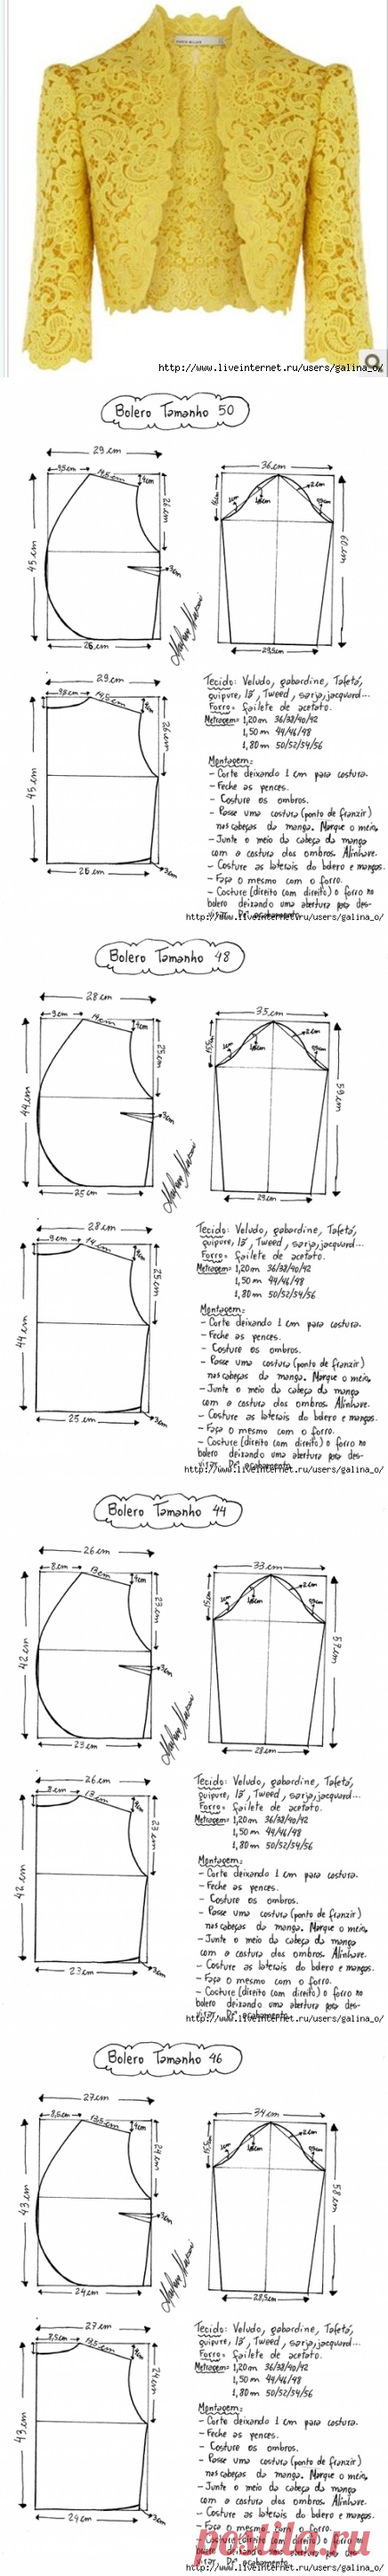 KAREN MILLEN
http://www.liveinternet.ru/users/galina_o/
Bolero Tamanho 50
29 cm
9,5cm
14,5 cm
4cm
26 cm
45 cm
3cm
26 cm
36 cm
2cm
60 cm
29,5cm
29 cm
9,5 cm
14,5 cm
26 cm
45 cm
26 cm
3cm
Tecido: Veludo, gabardine, Tafetá,
guipure, lã, Tweed, sarja, jacquard...
Forro: failete de acetato.
Metragem: 1,20m 36/38/40/42
1,50 m 44/46/48
1,80 m 50/52/54/56
Montagem:
- Corte deixando 1 cm para costura.
- Feche as pences.
- Costure os ombros.
- Passe uma costura (ponto de franzir)
nas cabeças da manga. Marque o meio.
- Junte o meio da cabeça da manga
com a costura dos ombros. Alinhave.
- Costure as laterais do bolero e mangas.
- Faça o mesmo com o forro.
- Costure (direito com direito) o forro no
bolero deixando uma abertura para des-
virar. Dê acabamento.
http://www.liveinternet.ru/users/galina_o/
Bolero Tamanho 48
28 cm
9cm
14cm
4cm
25cm
44cm
3cm
25 cm
35cm
15,5cm
2cm
59cm
29cm
28 cm
9 cm
14 cm
25cm
44 cm
25 cm
3cm
Tecido: Veludo, gabardine, Tafetá,
guipure, lã, Tweed, sarja, jacquard...
Forro: failete de acetato.
Metragem: 1,20m 36/38/40/42
1,50 m 44/46/48
1,80 m 50/52/54/56
Montagem:
- Corte deixando 1 cm para costura.
- Feche as pences.
- Costure os ombros.
- Passe uma costura (ponto de franzir)
nas cabeças da manga. Marque o meio.
- Junte o meio da cabeça da manga
com a costura dos ombros. Alinhave.
- Costure as laterais do bolero e mangas.
- Faça o mesmo com o forro.
- Costure (direito com direito) o forro no
bolero deixando uma abertura para des-
virar. Dê acabamento.
http://www.liveinternet.ru/users/galina_o/
Bolero Tamanho 44
26 cm
8cm
13cm
4cm
23cm
42 cm
3cm
23cm
33cm
15cm
2cm
57cm
28cm
26 cm
8cm
13
23cm
42 cm
23cm
3cm
Tecido: Veludo, gabardine, Tafetá,
guipure, lã, Tweed, sarja, jacquard...
Forro: failete de acetato.
Metragem: 1,20m 36/38/40/42
1,50 m 44/46/48
1,80 m 50/52/54/56
Montagem:
- Corte deixando 1 cm para costura.
- Feche as pences.
- Costure os ombros.
- Passe uma costura (ponto de franzir)
nas cabeças da manga. Marque o meio.
- Junte o meio da cabeça da manga
com a costura dos ombros. Alinhave.
- Costure as laterais do bolero e mangas.
- Faça o mesmo com o forro.
- Costure (direito com direito) o forro no
bolero deixando uma abertura para des-
virar. Dê acabamento.
http://www.liveinternet.ru/users/galina_o/
Bolero Tamanho 46
27cm
8,5cm
13,5cm
4cm
24cm
43 cm
3cm
24cm
34cm
15,5cm
2cm
58cm
28,5cm
27cm
8,5cm
13,5cm
24cm
43 cm
24cm
3cm
Tecido: Veludo, gabardine, Tafetá,
guipure, lã, Tweed, sarja, jacquard...
Forro: failete de acetato.
Metragem: 1,20m 36/38/40/42
1,50 m 44/46/48
1,80 m 50/52/54/56
Montagem:
- Corte deixando 1 cm para costura.
- Feche as pences.
- Costure os ombros.
- Passe uma costura (ponto de franzir)
nas cabeças da manga. Marque o meio.
- Junte o meio da cabeça da manga
com a costura dos ombros. Alinhave.
- Costure as laterais do bolero e mangas.
- Faça o mesmo com o forro.
- Costure (direito com direito) o forro no
bolero deixando uma abertura para des-
postila.ru
http://www.liveinternet.ru/users/galina_o/